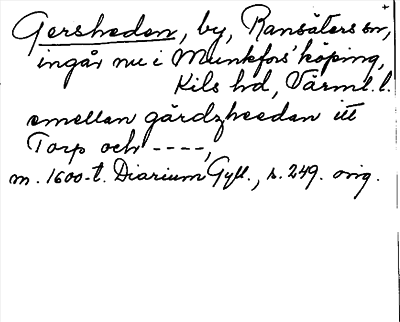 Gersheden, by, Ransäters sn,
ingår nu i Munkfors' köping,
Kils hd, Värml. l.
emellan gärdzheedan itt
Torp och ----,
m. 1600-t. Diarium Gyll., s. 249. orig.